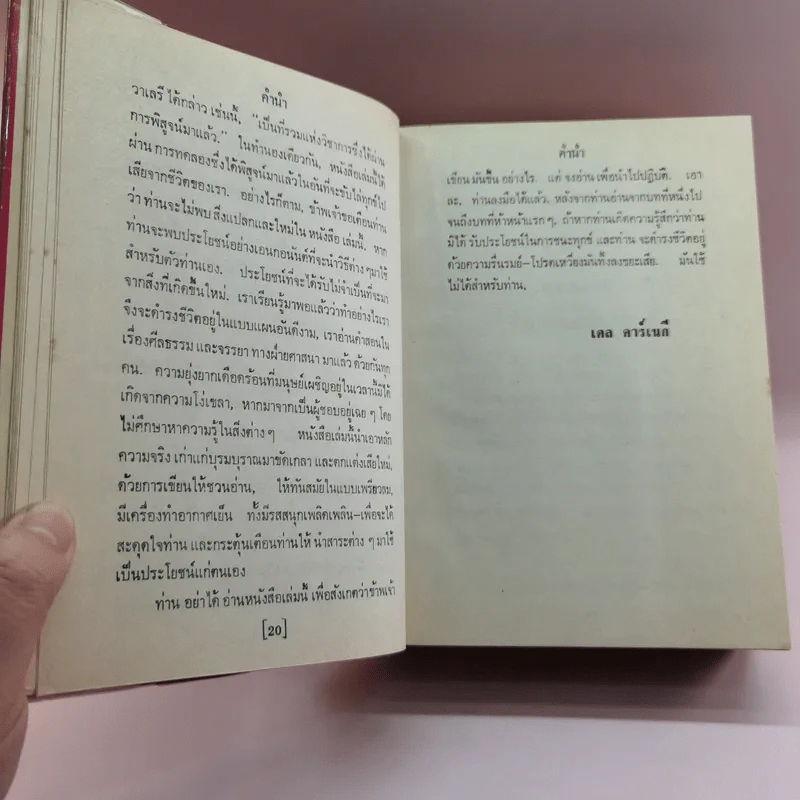 คำนำ
วาเลรี ได้กล่าว เช่นนี้, "เป็นที่รวมแห่งวิชาการซึ่งได้ผ่าน
การพิสูจน์มาแล้ว." ในทำนองเดียวกัน, หนังสือเล่มนี้ได้
ผ่าน การทดลองซึ่งได้พิสูจน์มาแล้วในอันที่จะขับไล่ทุกข์ไป
เสียจากชีวิตของเรา. อย่างไรก็ตาม, ข้าพเจ้าขอเตือนท่าน
ว่า ท่านจะไม่พบ สิ่งแปลกและใหม่ใน หนังสือ เล่มนี้. หาก
ท่านจะพบประโยชน์อย่างเอนกอนันต์ที่จะนำวิธีต่าง ๆมาใช้
สำหรับตัวท่านเอง. ประโยชน์ที่จะได้รับไม่จำเป็นที่จะมา
จากสิ่งที่เกิดขึ้นใหม่. เราเรียนรู้มาพอแล้วว่าทำอย่างไรเรา
จึงจะดำรงชีวิตอยู่ในแบบแผนอันดีงาม, เราอ่านคำสอนใน
เรื่องศีลธรรม และจรรยา ทางฝ่ายศาสนา มาแล้ว ด้วยกันทุก
คน. ความยุ่งยากเดือดร้อนที่มนุษย์เผชิญอยู่ในเวลานี้มิได้
เกิดจากความโง่เขลา, หากมาจากเป็นผู้ชอบอยู่เฉย ๆ โดย
ไม่ศึกษาหาความรู้ในสิ่งต่าง ๆ หนังสือเล่มนี้นำเอาหลัก
ความจริง เก่าแก่บุรมบุราณมาขัดเกลา และตกแต่งเสียใหม่,
ด้วยการเขียนให้ชวนอ่าน, ให้ทันสมัยในแบบเพรียวลม,
มีเครื่องทำอากาศเย็น ทั้งมีรสสนุกเพลิดเพลิน–เพื่อจะได้
สะดุดใจท่าน และกระตุ้นเตือนท่านให้ นำสาระต่าง ๆ มาใช้
เป็นประโยชน์แก่ตนเอง
ท่าน อย่าได้ อ่านหนังสือเล่มนี้ เพื่อสังเกตว่าข้าพเจ้า
[20]
คำนำ
เขียน มันขึ้น อย่างไร. แต่ จงอ่าน เพื่อนำไปปฏิบัติ. เอา
ละ, ท่านลงมือได้แล้ว. หลังจากท่านอ่านจากบทที่หนึ่งไป
จนถึงบทที่ห้าหน้าแรก ๆ, ถ้าหากท่านเกิดความรู้สึกว่าท่าน
มิได้ รับประโยชน์ในการชนะทุกข์ และท่าน จะดำรงชีวิตอยู่
ด้วยความรื่นรมย์–โปรดเหวี่ยงมันทิ้งลงขยะเสีย. มันใช้
ไม่ได้สำหรับท่าน.
เดล คาร์เนกี